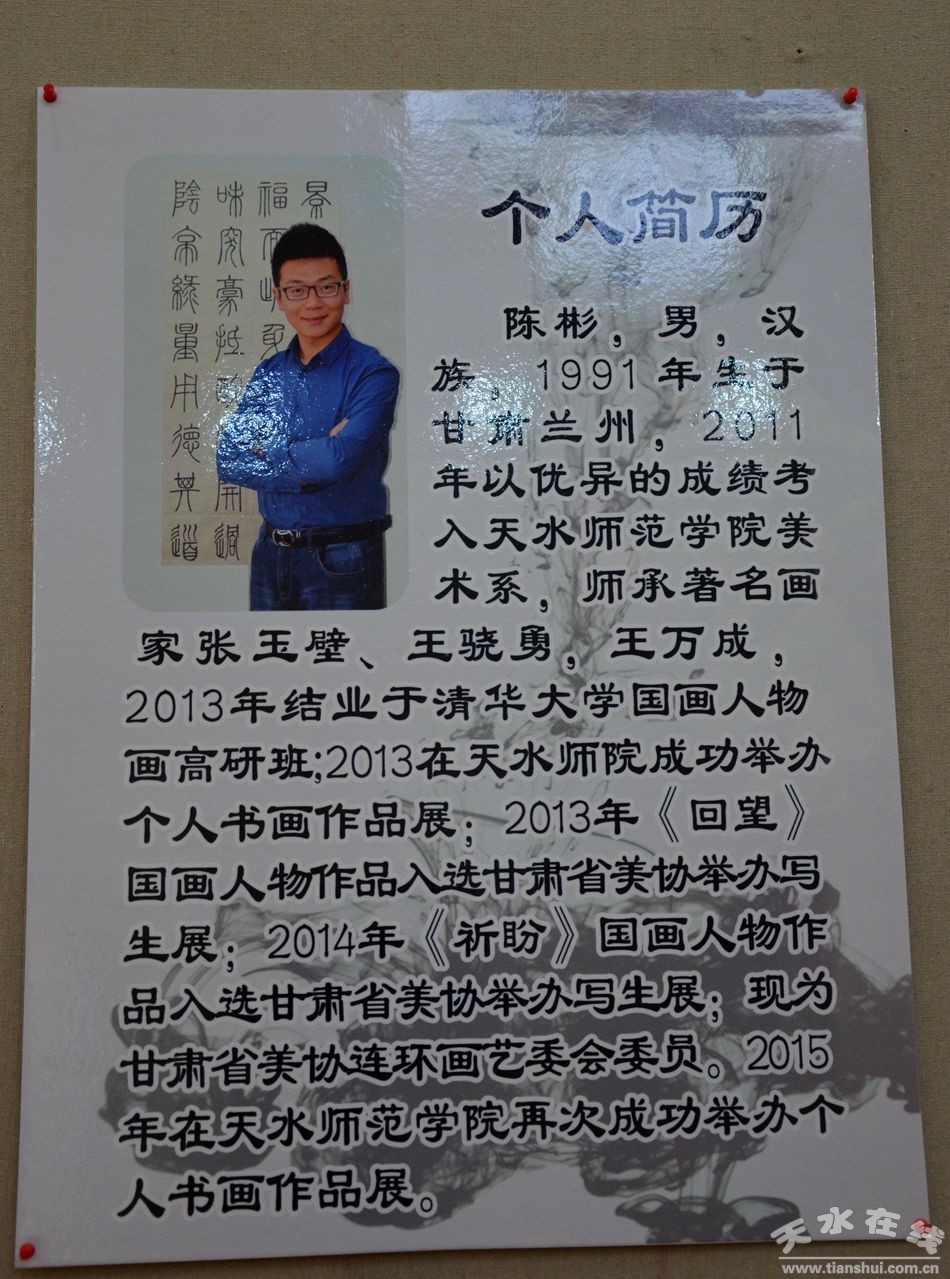 个人简历
陈彬，男，汉
族，1991年生于
甘肃兰州，2011
年以优异的成绩考
入天水师范学院美
术系，师承著名画
家张玉壁、王骁勇，王万成，
2013年结业于清华大学国画人物
画高研班;2013在天水师院成功举办
个人书画作品展；2013年《回望》
国画人物作品入选甘肃省美协举办写
生展；2014年《祈盼》国画人物作
品入选甘肃省美协举办写生展；现为
甘肃省美协连环画艺委会委员。2015
年在天水师范学院再次成功举办个
人书画作品展。
天水在线
www.tianshui.com.cn